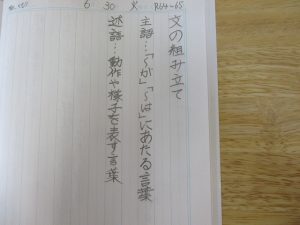 6 30 火 P.64~65
文の組み立て
主語…「~が」「~は」にあたる言葉
述語…動作や様子を表す言葉